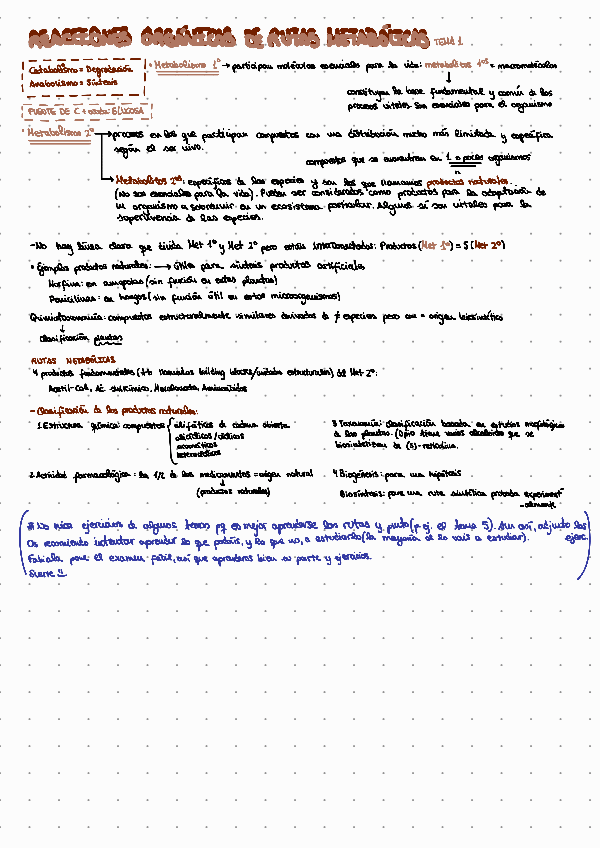 REACCIONES ORGÁNICAS DE RUTAS METABÓLICAS TEMA 1
Catabolismo = Degradación
Anabolismo = Síntesis
FUENTE DE C + : GLUCOSA
• Metabolismo 1º → participan moléculas esenciales para la vida: metabolitos 1os = macromoléculas
constituyen la base fundamental y común de los
procesos vitales. Son esenciales para el organismo
• Metabolismo 2º → procesos en los que participan compuestos con una distribución mucho más limitada y específica
según el ser vivo.
compuestos que se encuentran en 1 o pocos organismos
→ Metabolitos 2os: específicos de las especies y son los que llamamos productos naturales.
(No son esenciales para la vida). Pueden ser considerados como productos para la adaptación de
un organismo a sobrevivir en un ecosistema particular. Algunos sí son vitales para la
supervivencia de las especies.
- No hay línea clara que divida Met 1º y Met 2º pero están interconectados: Productos (Met 1º) = S (Met 2º)
• Ejemplos productos naturales: → útiles para síntesis productos artificiales
Morfina: en amapolas (sin función en estas plantas)
Penicilinas: en hongos (sin función útil en estos microorganismos)
Quimiotaxonomía: compuestos estructuralmente similares derivados de ≠ especies pero con = origen biosintético
↓
clasificación plantas
RUTAS METABÓLICAS
4 productos fundamentales (tb llamados building blocks/unidades estructurales) del Met 2º:
Acetil-CoA, Ác shikímico, Mevalonato, Aminoácidos
- Clasificación de los productos naturales:
1. Estructura química: compuestos alifáticos de cadena abierta
alicíclicos/cíclicos
aromáticos
heterocíclicos
3. Taxonomía: clasificación basada en estudios morfológicos
de las plantas. (Opio tiene varios alcaloides que se
biosintetizan de (S)-reticulina.
2. Actividad farmacológica: la 1/2 de los medicamentos = origen natural
↓
(productos naturales)
4. Biogénesis: para una hipótesis
Biosíntesis: para una ruta sintética probada experiment-
-almente
No hice ejercicios de algunos temas pq es mejor aprenderse las rutas y punto (p ej. el tema 5). Aun así, adjunto los
ejerc.
Os recomiendo intentar aprender lo que podáis, y lo que no, a estudiarlo (la mayoría de lo vais a estudiar).
Fabiola pone el examen fácil, así que aprenderos bien su parte y ejercicios.
Suerte :)